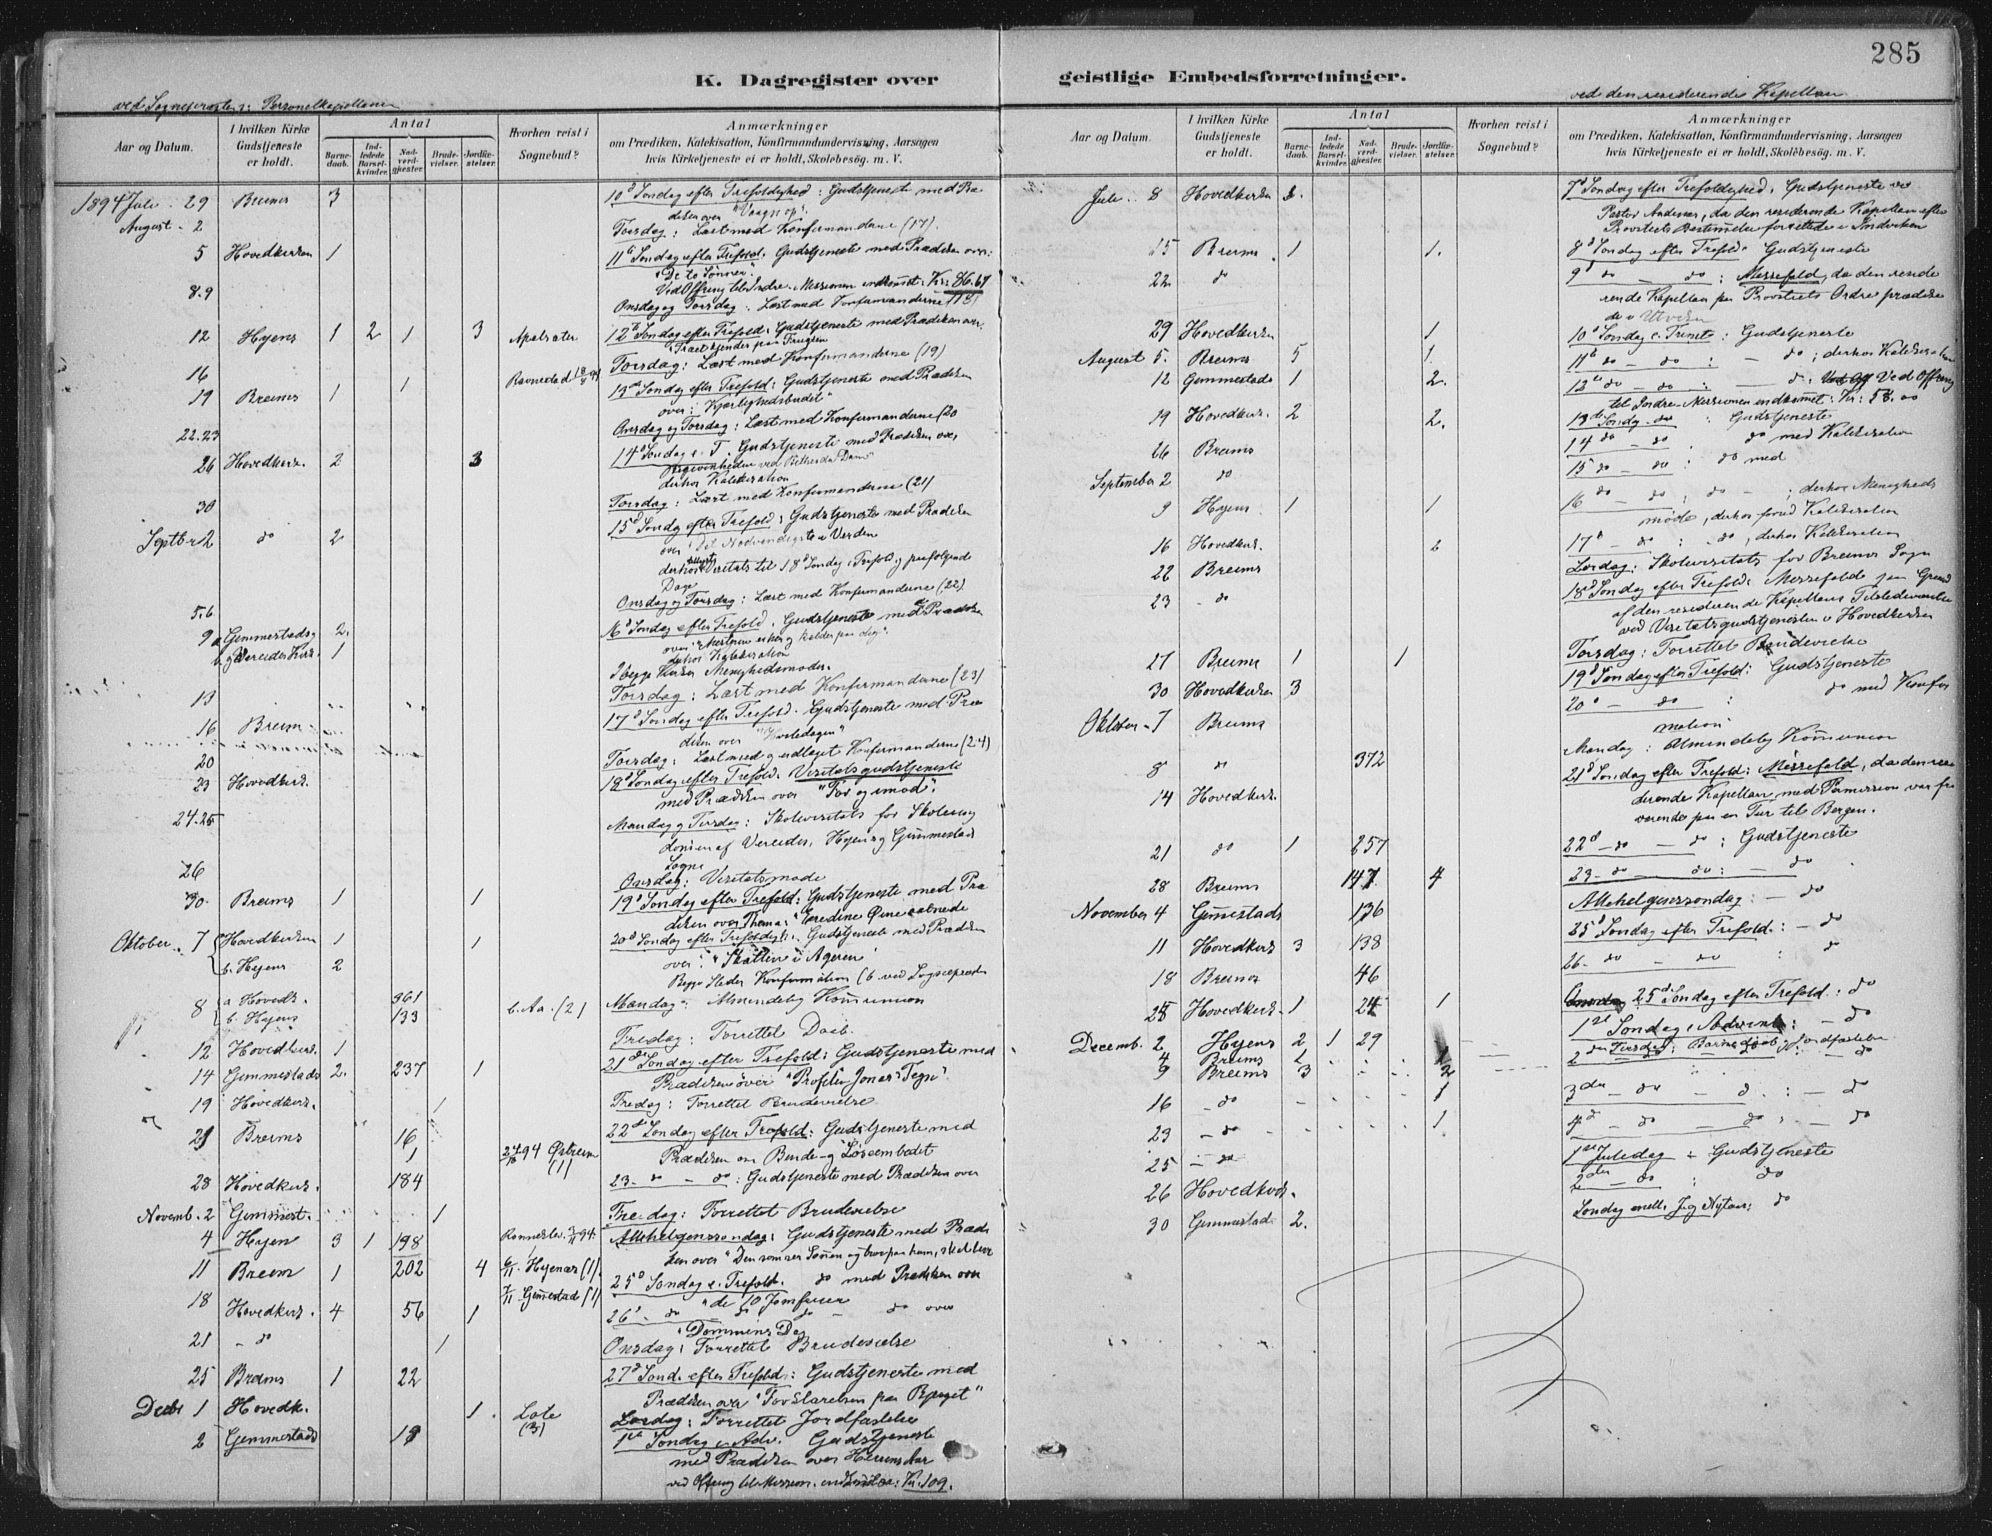 285
K. Dagregister over geistlige Embedsforretninger.
ved Sognepresten; Personelkapellanen
ved den residerende Kapellan
Aar og Datum.
I hvilken Kirke Gudstjeneste er holdt.
Antal
Barnedaab.
Indledede Barselkvinder.
Nadverdgjester.
Brudevielser.
Jordfæstelser.
Hvorhen reist i Sognebud?
Anmærkninger
om Prædiken, Katekisation, Konfirmandundervisning, Aarsagen
hvis Kirketjeneste ei er holdt, Skolebesøg. m. V.
1894 Juli 29 Breims 3 10d Søndag efter Trefoldighed: Gudstjeneste med Præ
diken over "Vaagn op".
August 2 Torsdag: Læst med Konfirmanderne (17).
5 Hovedkirken 1 11te Søndag efter Trefold. Gudstjeneste med Prædiken over:
"De to Sønner".
Ved Offring til Indre-Missionen indkomet: Kr: 86.67
8.9 Onsdag og Torsdag: Læst med Konfirmanderne (18)
12 Hyens 1 2 1 3 Apalsæter 12te Søndag efter Trefold: Gudstjeneste med Prædiken over
"Træet kjendes paa Frugten
16 Torsdag: Læst med Konfirmanderne (19)
Ravnestad
19 Breims 1 1 13de Søndag efter Trefold: Gudstjeneste med Prædiken
over: "Kjærlighedsbudet"
22.23 Onsdag og Torsdag: Læst med Konfirmanderne (20
26 Hovedkirk. 2 3 14d Søndag e. T. Gudstjeneste med Prædiken over
Begivenheden ved Bethesda Dam
derhos Katekisation
30 Torsdag: Læst med Konfirmanderne (21)
Septbr 2 do 2 15d Søndag efter Trefold: Gudstjeneste med Prædiken
over "Det Nødvendigste i Verden
derhos tillyst Visitats til 18d Søndag i Trefold, og paafølgende
Dage
5.6 Onsdag og Torsdag: Læst med Konfirmanderne (22)
9 a Gimmestads 2. 16d Søndag efter Trefold. Gudstjeneste med Prædiken
b. Vereides Kirk. 1 over: "Mesteren er her og kalder paa dig".
derhos Katekisation
I begge Kirker Menighedsmøder.
13 Torsdag: Læst med Konfirmanderne (23)
16 Breim 17d Søndag efter Trefold. Gudstjeneste med Præ
diken over "Hviledagen"
20 Torsdag: Læst med og udtaget Konfirmanderne (24)
23 Hovedkirk. 18d Søndag efter Trefold. Visitatsgudstjeneste
med Prædiken over "For og imod".
24.25 Mandag og Tirsdag: Skolevisitats for Skoleung
domen af Vereides, Hyen og Gimmestad
Sogne
26 Onsdag: Visitatsmøde
30. Breims 1 1 19d Søndag efter Trefold: Gudstjeneste med Præ
diken over Thema: "Er dine Øine aabnede
Oktober 7 a Hovedkirken 1 1 20d Søndag efter Trefoldigh. Gudstjeneste med Prædiken
b. Hyens 2 over: "Skatten i Ageren"
Begge Steder Konfirmation (b ved Sognepresten
8 a Hovedk. 361 b. Aa. (2) Mandag: Almindelig Kommunion
b. Hyens 133
12 Hovedkirk. 1 Fredag: Forrettet Daab.
14 Gimmestads 2. 237 1 21d Søndag efter Trefold: Gudstjeneste med
Prædiken over "Profeten Jonas's Tegn".
19 Hovedkirk. 1 Fredag: Forrettet Brudevielse
21 Breims 16 22de Søndag efter Trefold: Gudstjeneste med
24/10 94 Østreim (1) Prædiken om Binde- og Løseembedet
28 Hovedkirk. 184 23- do - do: Gudstjeneste med Prædiken over
Novemb. 2 Gimmest. 1 Fredag: Forrettet Brudevielse
4 Hyen 3 1 198 Allehelgenssøndag: Gudstjeneste med Prædi
ken over "Den som ser Sønnen og tror paa ham, skal have
11 Breim 1 202 4 6/11 Hyenæs (1) 25d Søndag e. Trefold. do med Prædiken over
7/11 Gimestad (1) "de 10 Jomfruer
18 Hovedkirk. 4 56 1 26d - do do - do over
"Dommens Dag
21 - do 1 Onsdag: Forrettet Brudevielse
25 Breims 1 22 27d Sønd. efter Trefold: Gudstjeneste med
Prædiken over "Forklarelsen paa Bjerget"
Decbr 1 Hovedk. 1. Lote (3) Lørdag: Forrettet Jordfæstelse
2 Gimmestads 19 1ste Søndag i Adv. Gudstjeneste
med Prædiken over
ved Offring til Mission. indkom: Kr. 109.
Aar og Datum.
I hvilken Kirke Gudstjeneste er holdt.
Antal
Barnedaab.
Indledede Barselkvinder.
Nadverdgjester.
Brudevielser.
Jordfæstelser.
Hvorhen reist i Sognebud?
Anmærkninger
om Prædiken, Katekisation, Konfirmandundervisning, Aarsagen
hvis Kirketjeneste ei er holdt, Skolebesøg. m. V.
Juli 8 Hovedkirken 1. 7d Søndag efter Trefoldighed. Gudstjeneste ved
Pastor Andenæs, da den residerende Kapellan efter
Provstiets Bestemmelse forrettede i Indviken
15 Breims 1 1. 8d Søndag efter Trefold. Gudstjeneste
22 do 9d do - do: Messefald, da den reside
rende Kapellan paa Provstiets Ordre prædike
de i Utviken
29 Hovedkirken 1 10d Søndag e. Trinit: Gudstjeneste
August 5. Breims 5 1. 11te do - do: - do; derhos Katekisation
12 Gimmestads 1 2. 12te do - do: - do: Ved Off Ved Offring
til Indre-Missionen indkomet: Kr: 58.00
19 Hovedkirk. 2 2. 13de Søndag - do: Gudstjeneste
26 Breims 14 do - do do med Katekisation
September 2 do 15 do - do: do med
9 Hyens 1 1 16 do - do; do - ; derhos Menigheds
møde, derhos forud Katekisation
16 Hovedkirk. 2 17d - do: - do, derhos Katekisation
22 Breims Lørdag: Skolevisitats for Breims Sogn
23 - do 18d Søndag efter Trefold: Messefald paa Grund
af den residerende Kapellans Tilstedeværelse
ved Visitatsgudstjenesten i Hovedkirken
27 Breims 1 1 Torsdag: Forrettet Brudevielse
30 Hovedkirken 3 19d Søndag efter Trefold: Gudstjeneste
Oktober 7 Breims 20d - do : do med Konfir
mation
8 do 372 Mandag: Almindelig Kommunion
14 Hovedkirk. 21d Søndag efter Trefold: Messefald, da den resi
derende Kapellan med Permission var fra
værende paa en Tur til Bergen.
21 do 1 257 22d - do - do: Gudstjeneste
28 Breims 147 4 23- do - do: - do
November 4 Gimestads 136 Allehelgenssøndag: - do
11 Hovedkirk 3 138 25d Søndag efter Trefold: - do
18 Breims 46 26- do - do : do
25 Hovedkirk. 1 24 1 25d Søndag efter Trefold: do
Decemb. 2 Hyens 2 1 29 1ste Søndag i Advent: - do
4 Breims 1 1 Tirsdag: Barnedaab, Jordfæstelse
9 Breims 3 2 2den - do - do - do
16 - do 1 3die - do - do: - do
23 - do 1 4d - do - do: - do
25 - do 1ste Juledag - Gudstjeneste
26 Hovedkirk. 2den - do : do
30 Gimmestad 2. Søndag mell. Jul og Nytaar: do